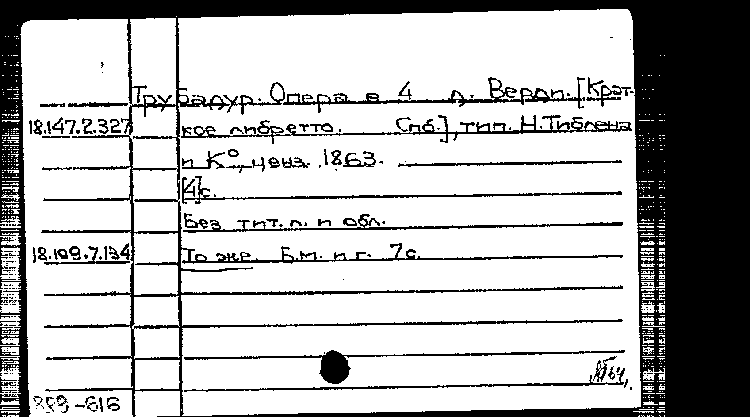 Трубадур. Опера в 4 д. Верди. [Крат-
18.147.2.327 кое либретто. Спб.], тип. Н. Тиблена
и К°, ценз. 1863.
[4]с.
Без тит. л. и обл.
18.109.7.134 То же. Б.м. и г. 7с.
859-616